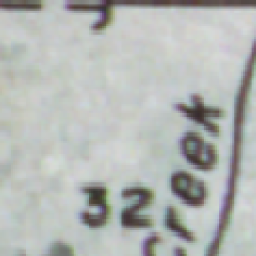 32
Creek